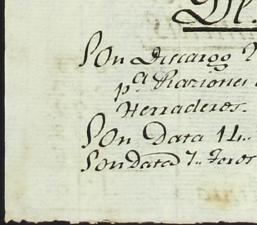 De
Son Discargo
pª Raziones
Herraderos.
Son Data 14..
Son Data 7.. Toros